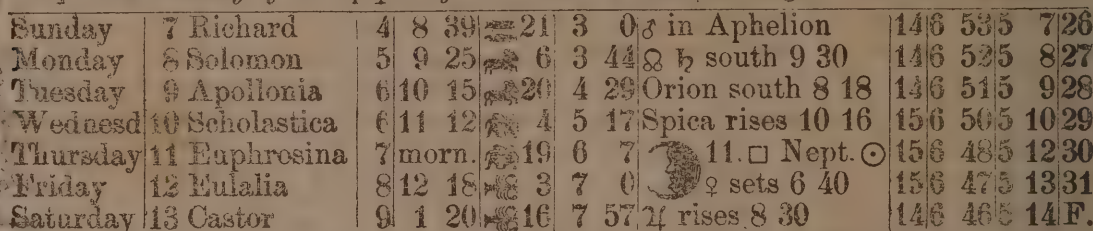 Sunday 7 Richard 4 8 39 21 3 0 ♂ in Aphelion 14 6 53 5 7 26
Monday 8 Solomon 5 9 25 6 3 44 ☊ ♄ south 9 30 14 6 52 5 8 27
Tuesday 9 Apollonia 6 10 15 20 4 29 Orion south 8 18 14 6 51 5 9 28
Wednesd 10 Scholastica 6 11 12 4 5 17 Spica rises 10 16 15 6 50 5 10 29
Thursday 11 Euphrosina 7 morn. 19 6 7 11. □ Nept. ☉ 15 6 48 5 12 30
Friday 12 Eulalia 8 12 18 3 7 0 ♀ sets 6 40 15 6 47 5 13 31
Saturday 13 Castor 9 1 20 16 7 57 ♃ rises 8 30 14 6 46 5 14 F.